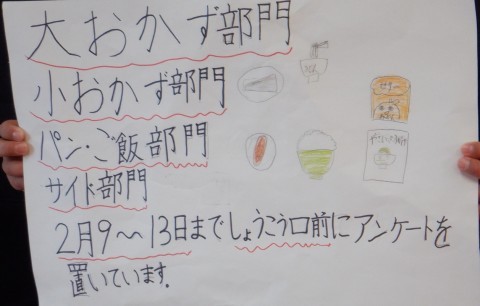 大おかず部門
小おかず部門
パン・ご飯部門
サイド部門
2月9〜13日までしょうこう口前にアンケートを
置いています.
ゼリー